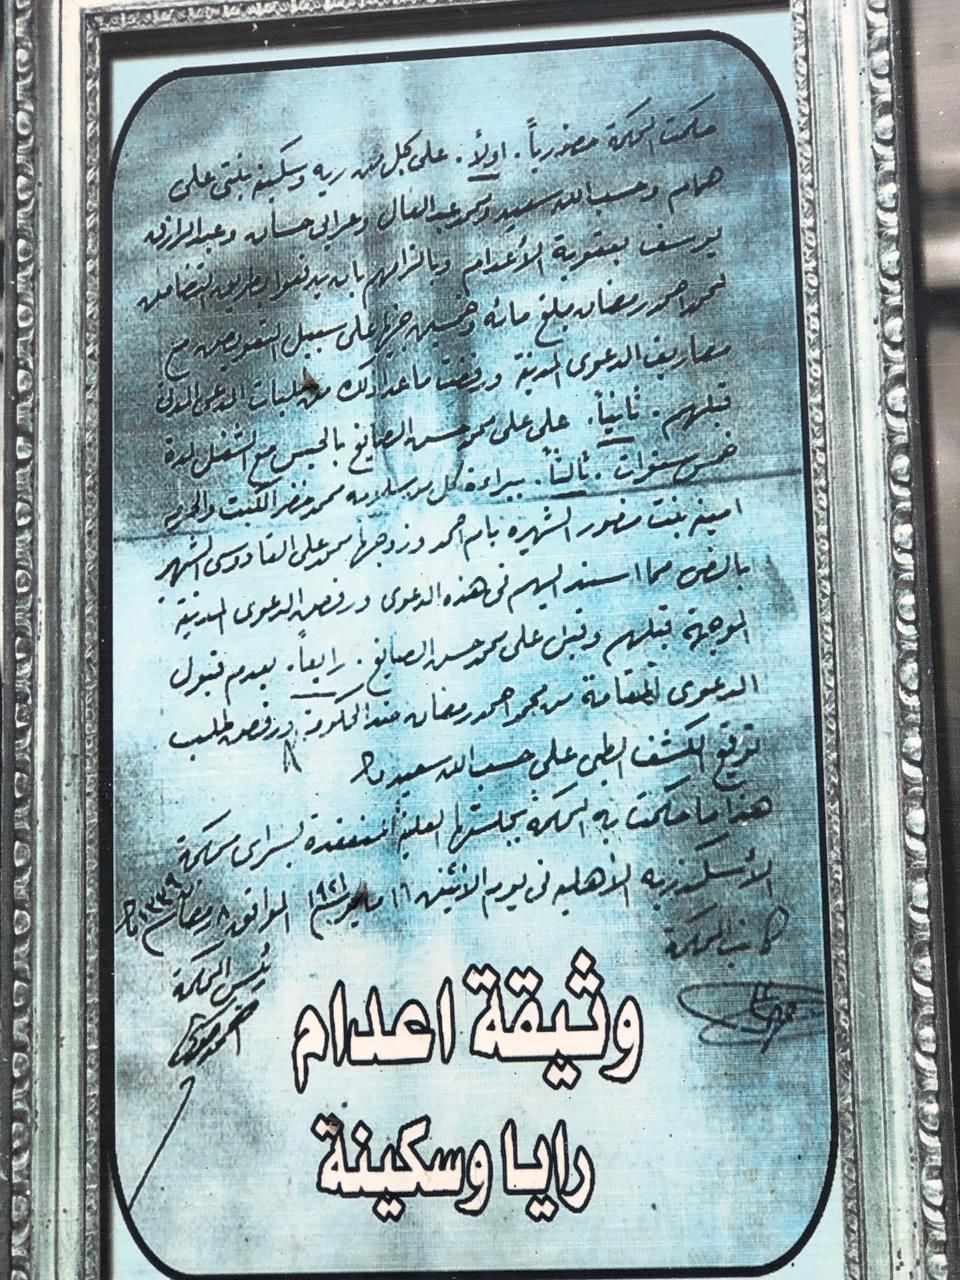 حكمت المحكمة حضورياً. اولاً. على كل من ريه وسكينه بنتى على
همام وحسب الله سعيد ومحمد عبد العال وعرابى حسان وعبد الرازق
يوسف بعقوبة الأعدام وبالزامهم بان يدفعوا بطريق التضامن
لمحمد احمد رمضان مبلغ مائة وخمسين جنيها على سبيل التعويض مع
مصاريف الدعوى المدنية ورفضت ما عدا ذلك من طلبات الدعوى المدنية
قبلهم. ثانياً. على على محمد حسن الصايغ بالحبس مع الشغل لمدة
خمس سنوات. ثالثاً. ببراءة كل من سلامه محمد خضر الكبت والحرمه
امينه بنت منصور الشهيره بام احمد وزوجها محمد على القادوسى الشهير
بالنص مما اسند اليهم فى هذه الدعوى ورفض الدعوى المدنية
الموجهة قبلهم وقبل على محمد حسن الصايغ. رابعاً. بعدم قبول
الدعوى المقامة من محمد احمد رمضان ضد الحكومة ورفض طلب
توقيع الكشف الطبى على حسب الله سعيد
هذا ما حكمت به المحكمة بجلستها العلنية المنعقدة بسراى محكمة
الأسكندريه الأهليه فى يوم الاثنين ١٦ مايو سنة ١٩٢١ الموافق ٨ رمضان سنة ١٣٣٩
كاتب المحكمة
رئيس المحكمة
وثيقة اعدام
رايا وسكينة